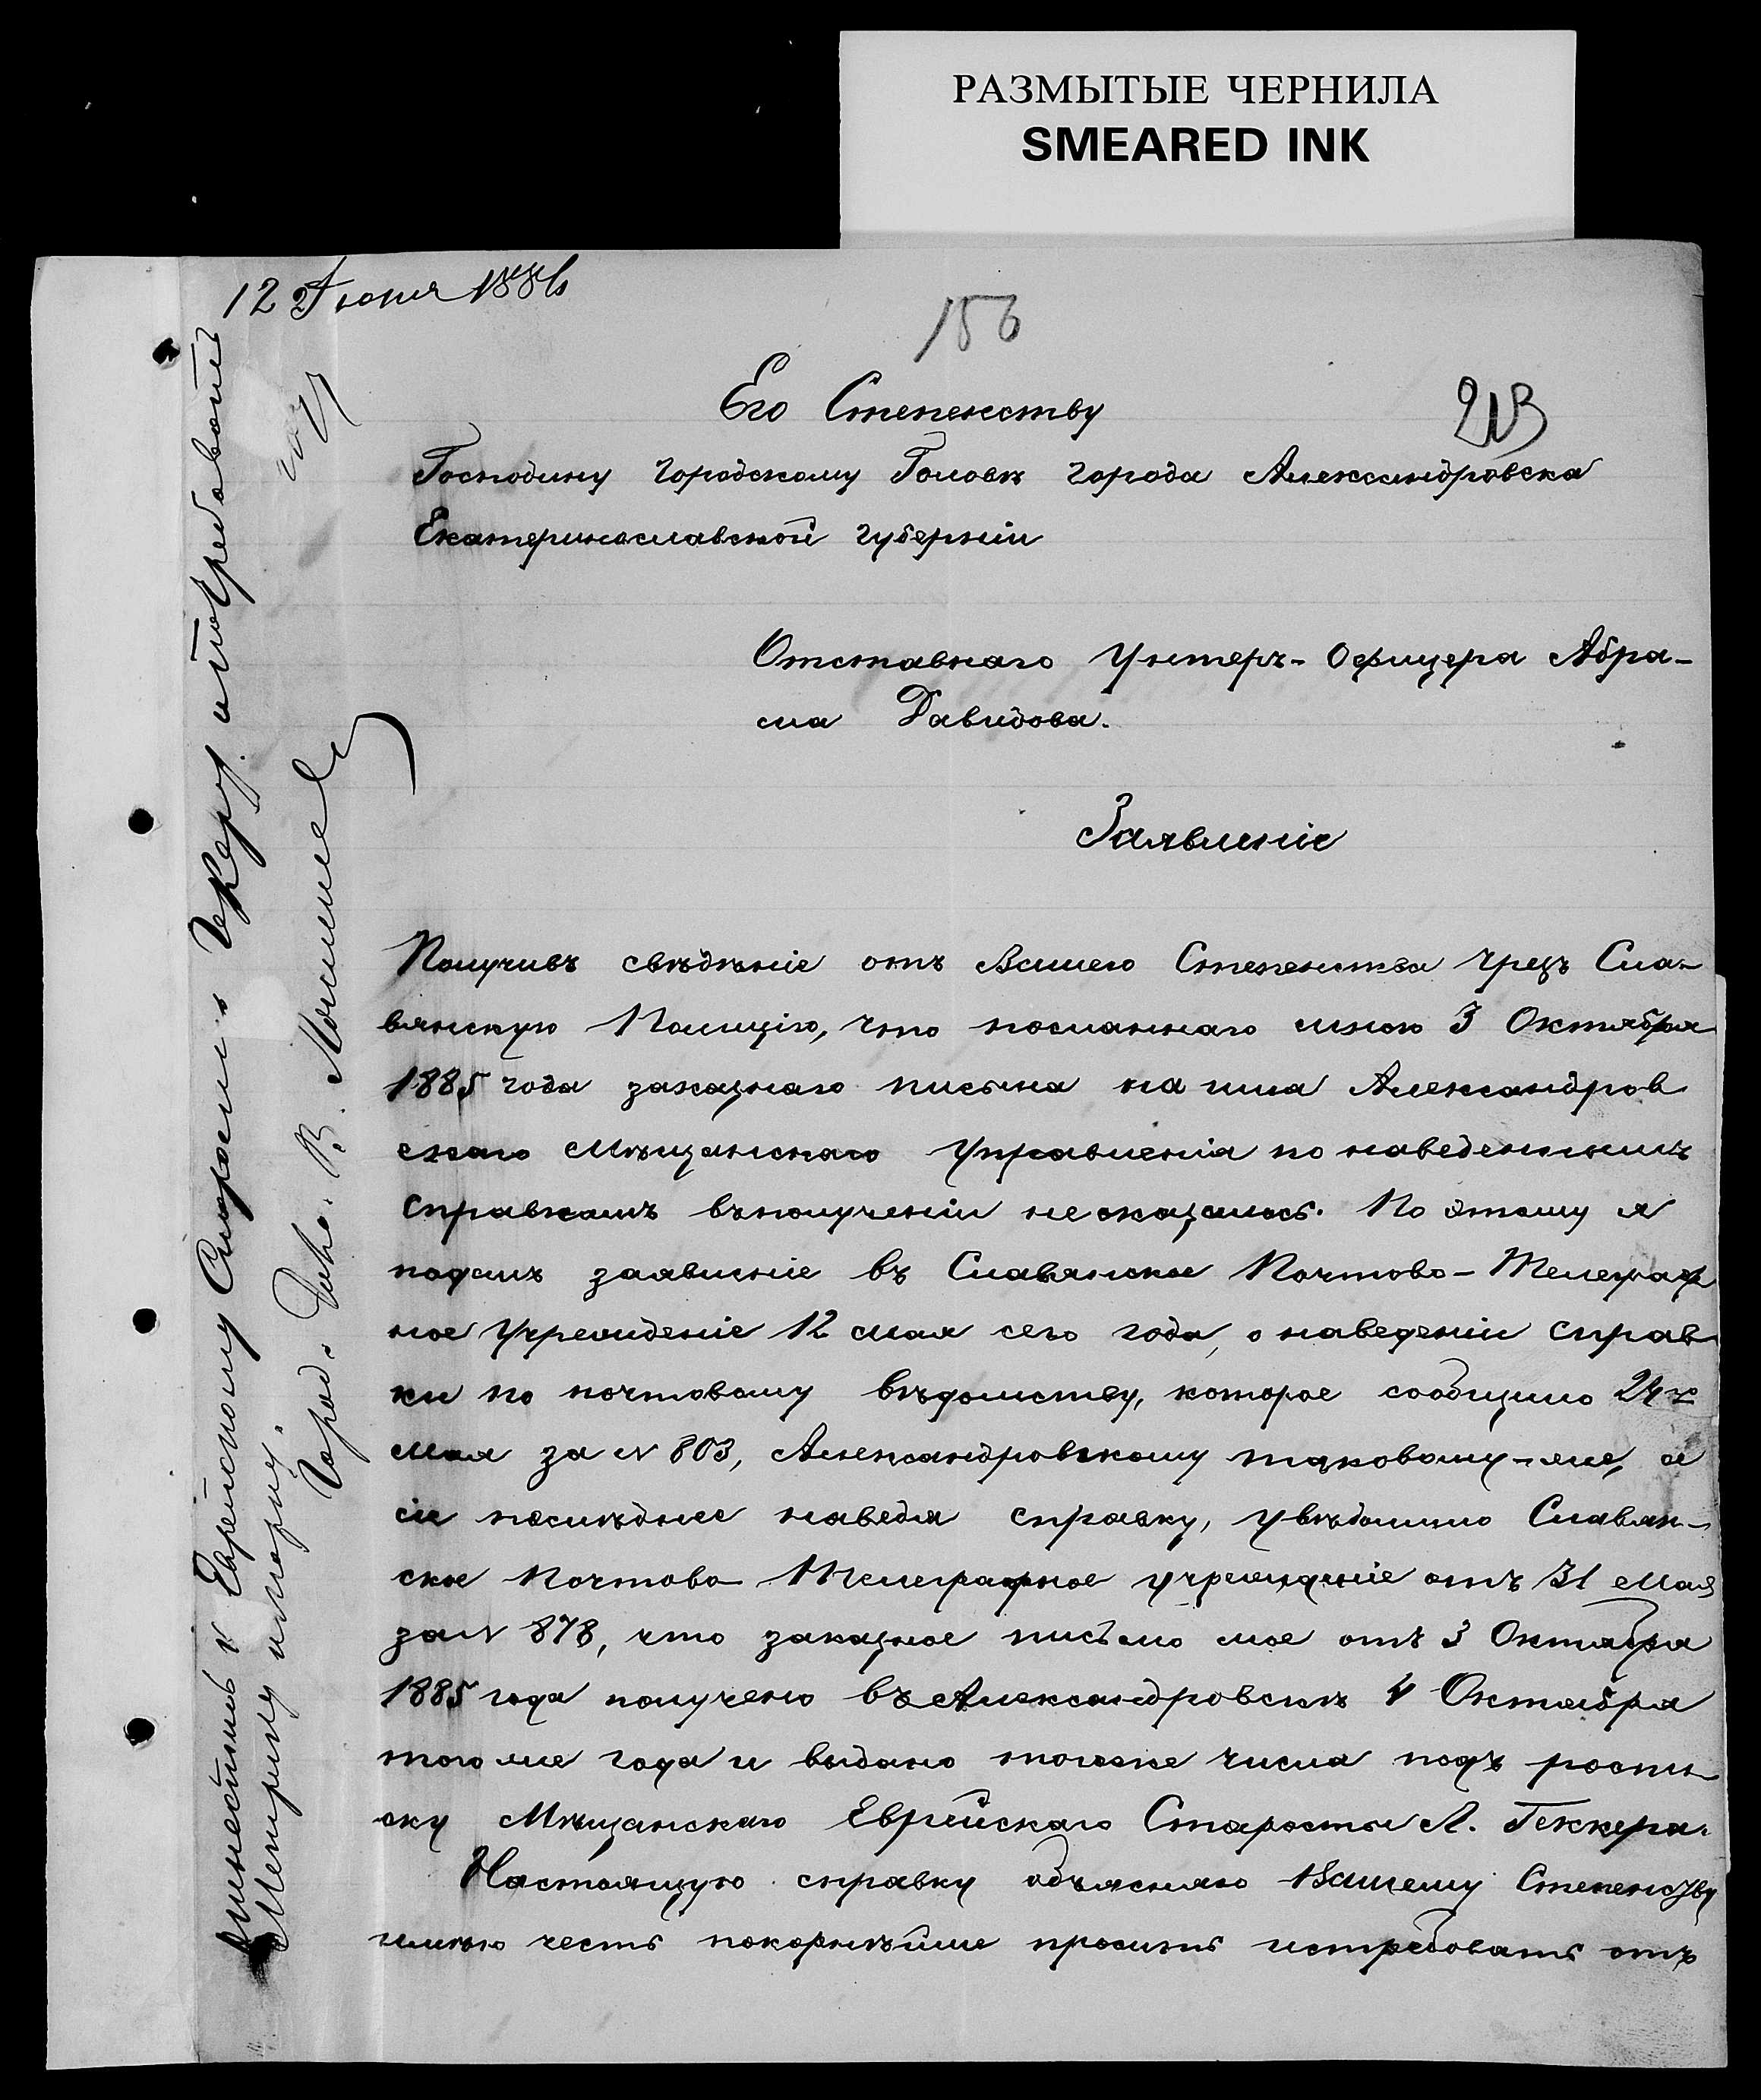 РАЗМЫТЫЕ ЧЕРНИЛА
SMEARED INK
12 Іюня 1886
156
213
Его Степенству
Господину Городскому Головѣ города Александровска
Екатеринославской губерніи
Отставнаго Унтеръ-Офицера Абра-
ма Давидова.
Заявленіе
Получивъ свѣдѣніе отъ Вашего Степенства чрезъ Сла-
вянскую Полицію, что посланнаго мною 3 Октября
1885 года заказнаго письма на имя Александров
скаго Мѣщанскаго Управленія по наведеннымъ
справкамъ въ полученіи не оказалось. По этому я
подалъ заявленіе въ Славянское Почтово-Телеграф
ное Учрежденіе 12 мая сего года, о наведеніи справ
ки по почтовому вѣдомству, которое сообщило 24го
Мая за N 803, Александровскому таковому-же, а
сіе послѣднее наведя справку, увѣдомило Славян-
ское Почтово Телеграфное учрежденіе отъ 31 Мая
за N 878, что заказное письмо мое отъ 3 Октября
1885 года получено въ Александровскѣ 4 Октября
того же года и выдано тогоже числа подъ роспи
ску Мѣщанскаго Еврейскаго Старосты Л. Геккера.
Настоящую справку объясняю Вашему Степенству
имѣю честь покорнѣйше просить истребовать отъ
Еврейскому Старосты Геккеру истребовать
Город.